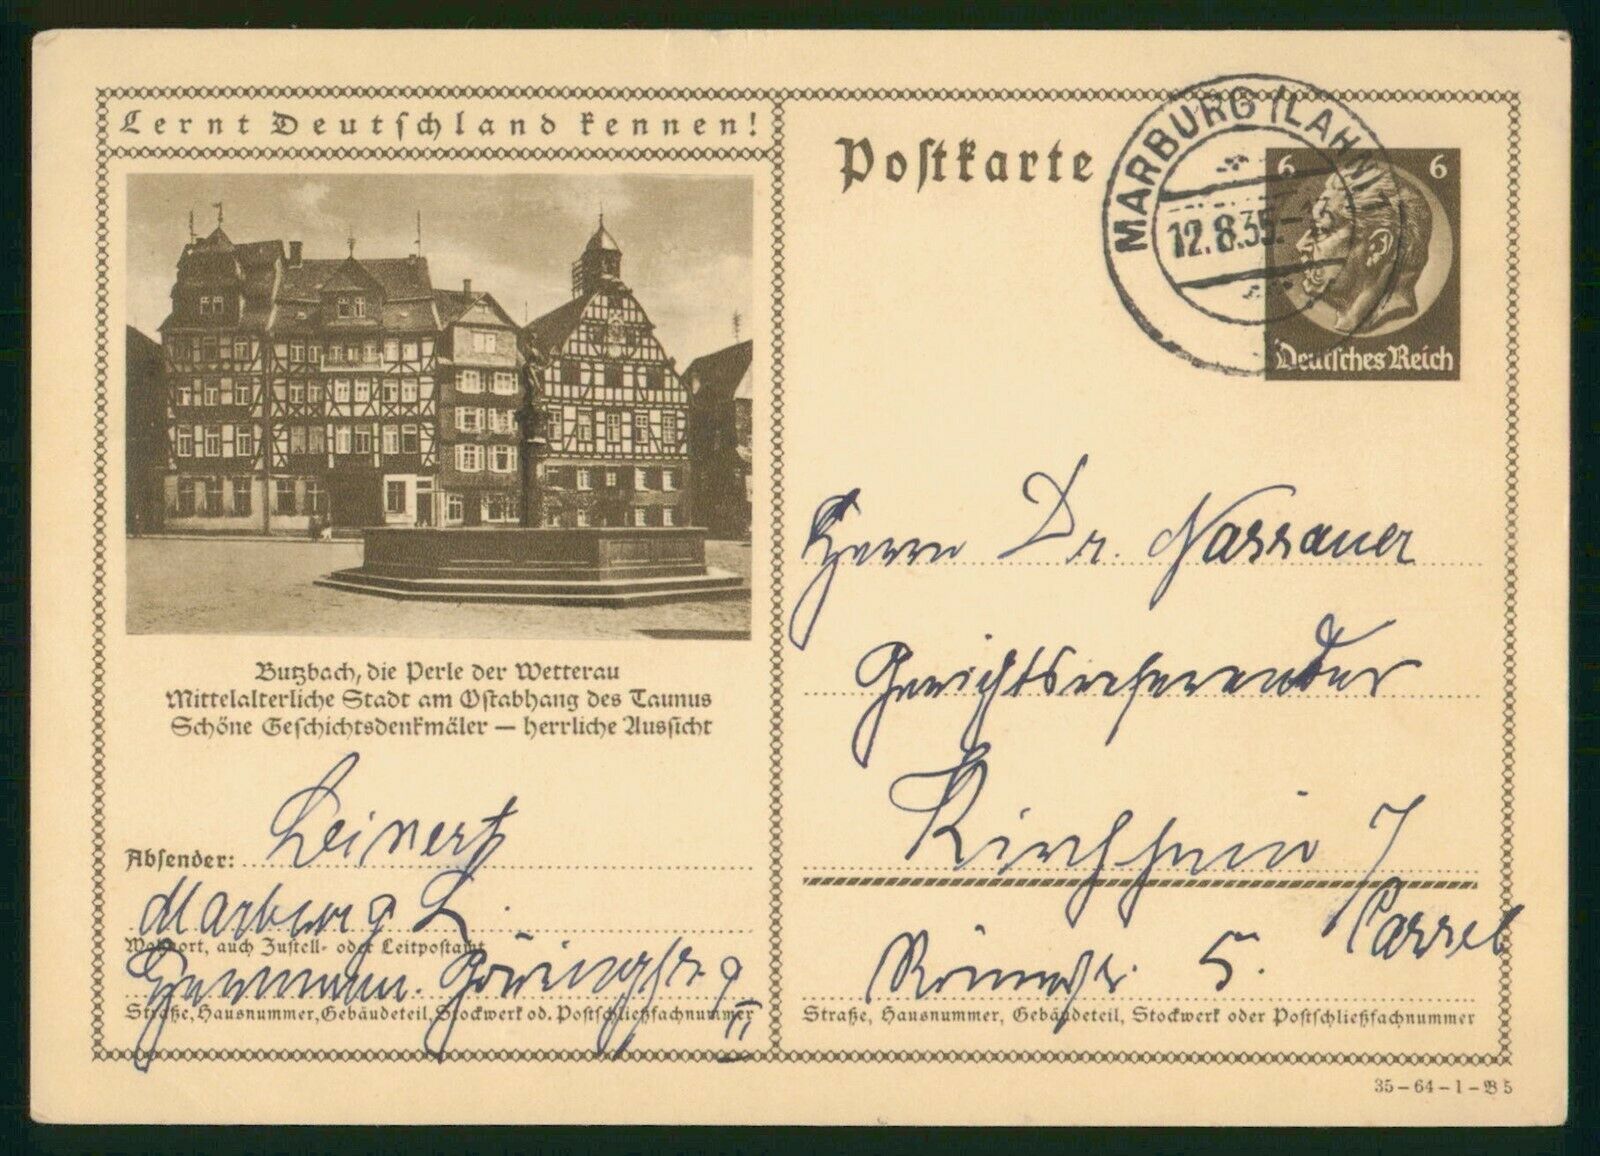 Lernt Deutschland kennen!
Postkarte
MARBURG (LAHN) 1
12.8.35.
6 6
Deutsches Reich
Butzbach, die Perle der Wetterau
Mittelalterliche Stadt am Ostabhang des Taunus
Schöne Geschichtsdenkmäler — herrliche Aussicht
Absender: Leinert
Marburg L.
Wohnort, auch Zustell- oder Leitpostamt
Hermann Göringstr. 9
II
Straße, Hausnummer, Gebäudeteil, Stockwerk od. Postschließfachnummer
Herrn Dr. Nassauer
Gerichtsreferendar
Kirchhain
Cassel
5.
Straße, Hausnummer, Gebäudeteil, Stockwerk oder Postschließfachnummer
35-64-1-B5